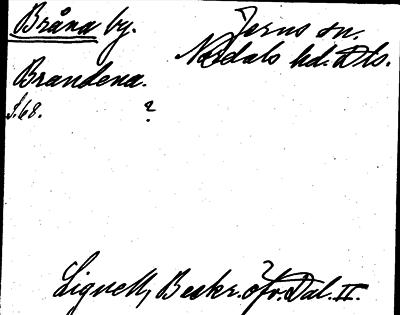 Bråna by.
Jerns sn.
Nordals hd. Dls.
Brandena.
S. 68. ?
Lignell, Beskr. öfv. Dal. II.